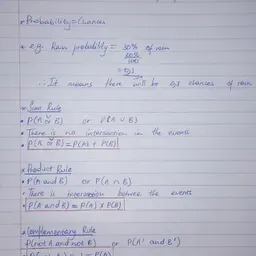 • Probability = Chances
• e.g. Rain probability = 30% of rain
30%
100
= 0,3
∴ It means there will be 0,3 chances of rain
• Sum Rule
• P(A or B) or P(A ∪ B)
• There is no intersection in the events
• P(A or B) = P(A) + P(B)
• Product Rule
• P(A and B) or P(A ∩ B)
• There is intersection between the events
• P(A and B) = P(A) x P(B)
• Complementary Rule
P(not A and not B) or P(A' and B')